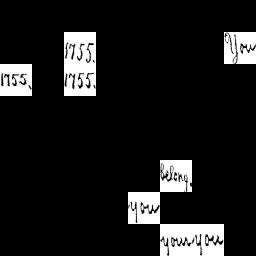 1755. You
1755. 1755.
belong.
you
you you